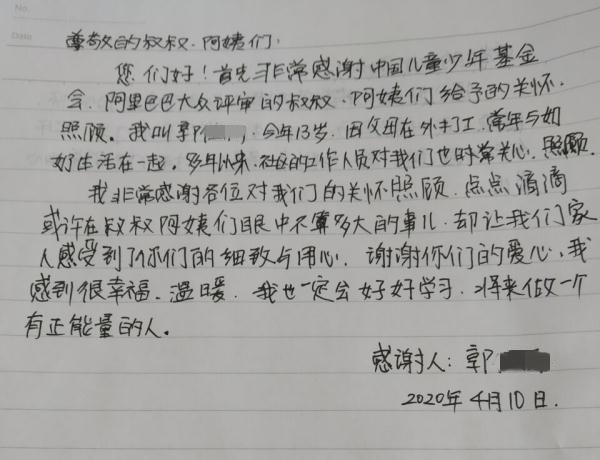 No.
Date
尊敬的叔叔、阿姨们:
您们好!首先非常感谢中国儿童少年基金
会、阿里巴巴大众评审的叔叔、阿姨们给予的关怀、
照顾。我叫郭,今年13岁,因父母在外打工,常年与奶
奶生活在一起。多年以来,社区的工作人员对我们也时常关心、照顾。
我非常感谢各位对我们的关怀照顾,点点滴滴
或许在叔叔阿姨们眼中不算多大的事儿,却让我们家
人感受到了你们的细致与用心。谢谢你们的爱心,我
感到很幸福、温暖,我也一定会好好学习,将来做一个
有正能量的人。
感谢人:郭
2020年4月10日.